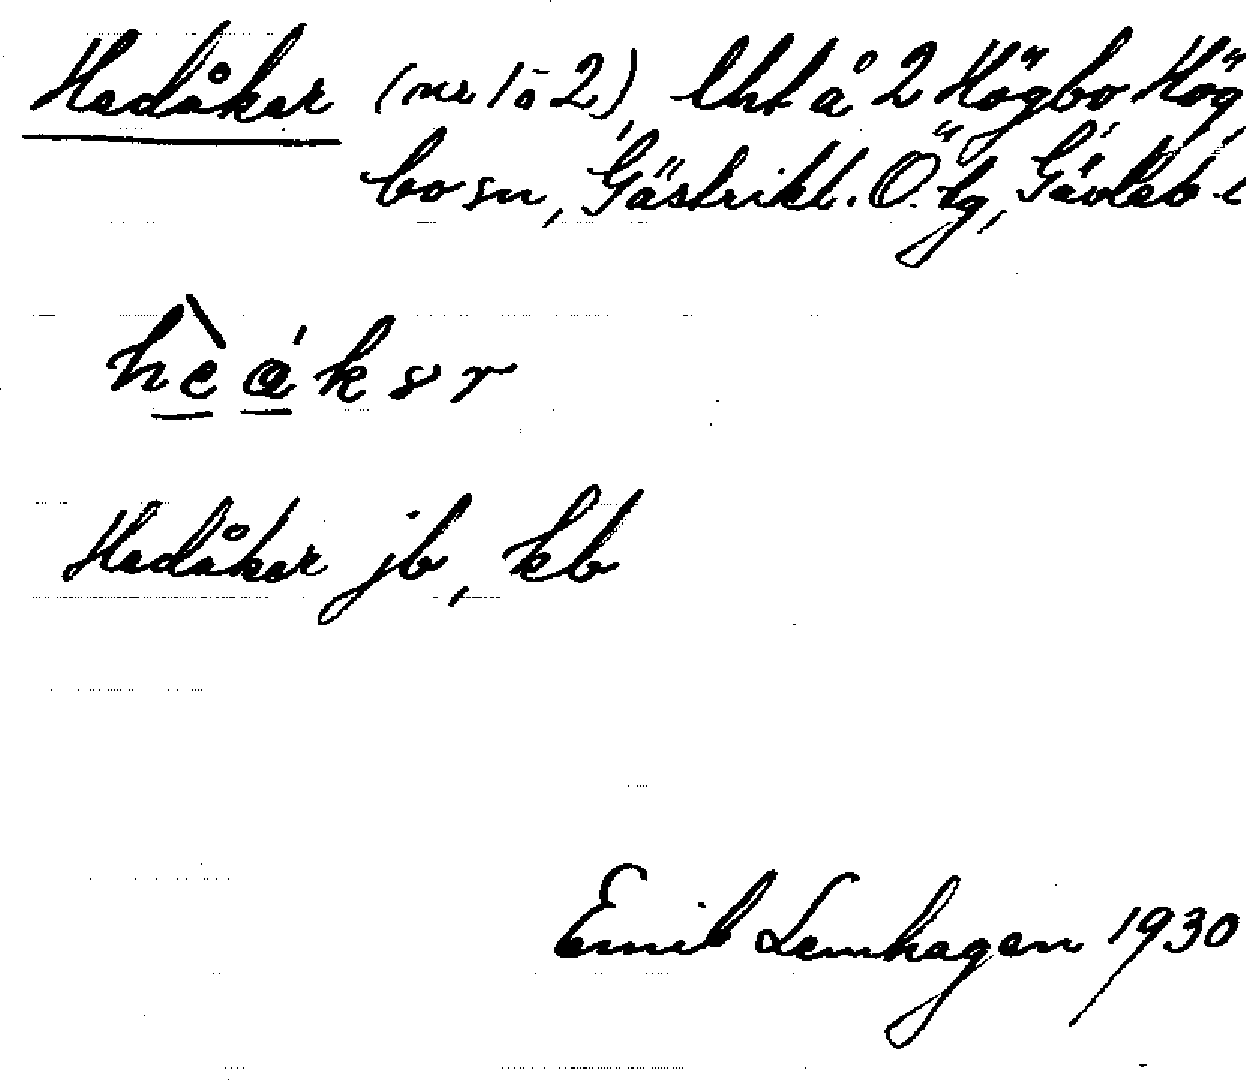 Hedåker (nr 1 o 2), lht å 2 Högbo Hög
bo sn, Gästrikl. Ö. tg, Gävleb. l
hèákər
Hedåker jb, kb
Emil Lennhagen 1930